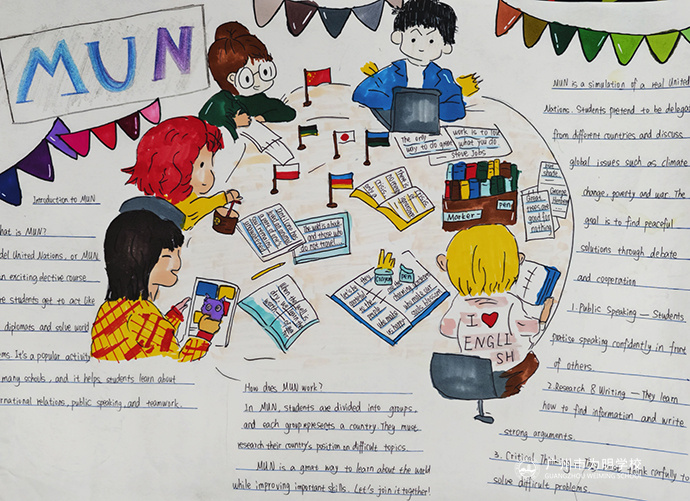 MUN
Introduction to MUN
hat is MUN?
del United Nations, or MUN
an exciting elective course
re students get to act like
diplomats and solve world
ems. It's a popular activity
many schools, and it helps students learn about
rnational relations, public speaking, and teamwork.
The only work is to
way to do great what you do
- Steve Jobs
Marker-pen
Great trees are good for nothing
George Herbert
The world is a book and those who do not travel...
I ❤ ENGLISH
How does MUN work?
In MUN, students are divided into groups,
and each group represents a country. They must
research their country's position on difficult topics.
MUN is a great way to learn about the world
while improving important skills. Let's join it together!
MUN is a simulation of a real United
Nations. Students pretend to be delegat
from different countries and discuss
global issues such as climate
change, poverty and war. The
goal is to find peaceful
solutions through debate
and cooperation
1. Public Speaking — Students
pratise speaking confidently in front
of others.
2. Research & Writing — They learn
how to find information and write
strong arguments.
3. Critical Thinking think carfully to
solve difficult problems.
广州市为明学校
GUANGZHOU WEIMING SCHOOL